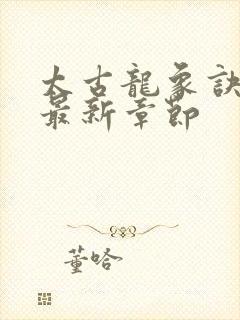 太古龍象訣
最新章節
董哈